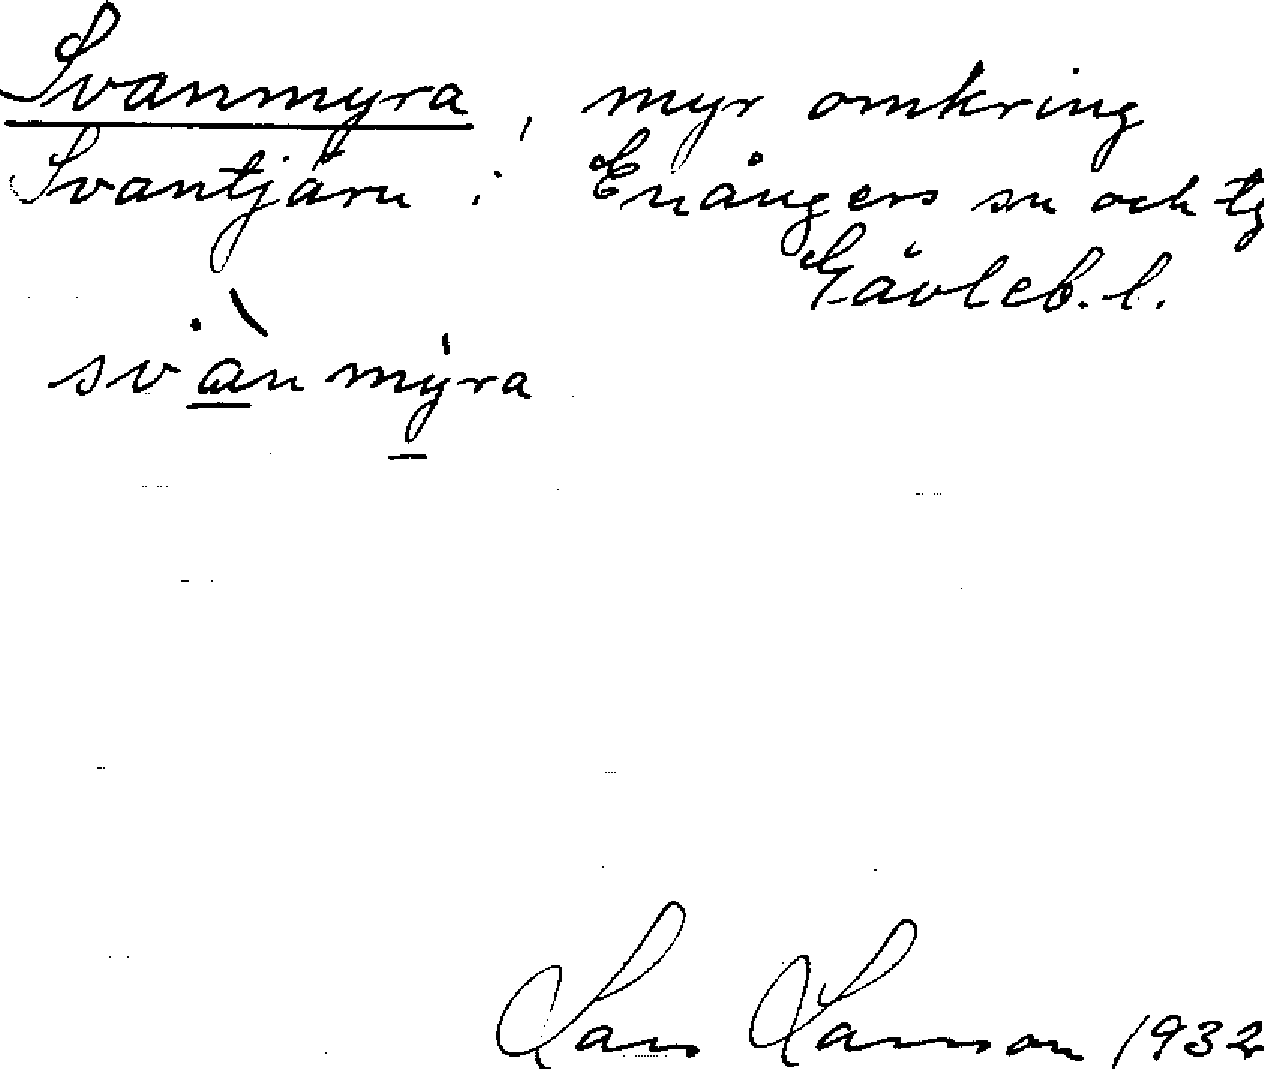 Svanmyra, myr omkring
Svantjärn i Enångers sn och tg
Gävleb. l.
svànmýra
Lars Larsson 1932